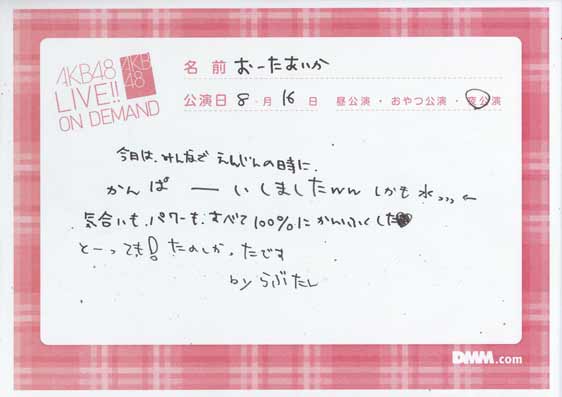 AKB48
LIVE!!
ON DEMAND
AKB
48
名前 おーたあいか
公演日 8月 16日 昼公演・おやつ公演・夜公演
今日は、みんなで えんじんの時に、
かんぱーいしましたww しかも水,,,←
気合いも、パワーも、すべて100%にかんふくした
とーっても! たのしかったです
by らぶたん
DMM.com